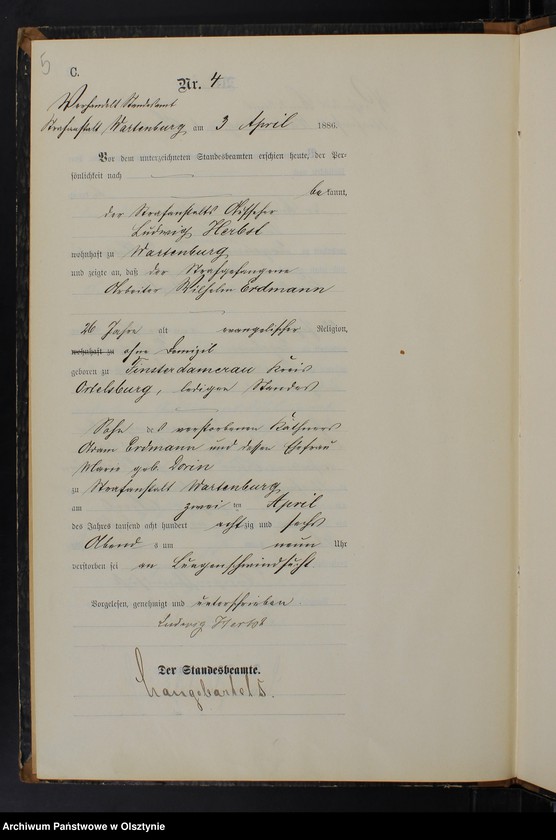 5
C.
Nr. 4
Standesamt
Strafanstalt Wartenburg am 3 April 1886.
Vor dem unterzeichneten Standesbeamten erschien heute, der Per-
sönlichkeit nach
be kannt,
der Strafanstalts Aufseher
Ludwig Herbst
wohnhaft zu Wartenburg
und zeigte an, daß der Strafgefangene
Arbeiter Wilhelm Erdmann
26 Jahre alt evangelischer Religion,
wohnhaft zu ohne Domizil
geboren zu Finsterdamerau Kreis
Ortelsburg, ledigen Standes
Sohn des verstorbenen Käthners
Adam Erdmann und dessen Ehefrau
Marie geb. Dorin
zu Strafanstalt Wartenburg
am zwei ten April
des Jahres tausend acht hundert acht zig und sechs
Abend s um neun Uhr
verstorben sei an Lungenschwindsucht
Vorgelesen, genehmigt und unterschrieben
Ludwig Herbst
Der Standesbeamte.
Langebartels.
Archiwum Państwowe w Olsztynie